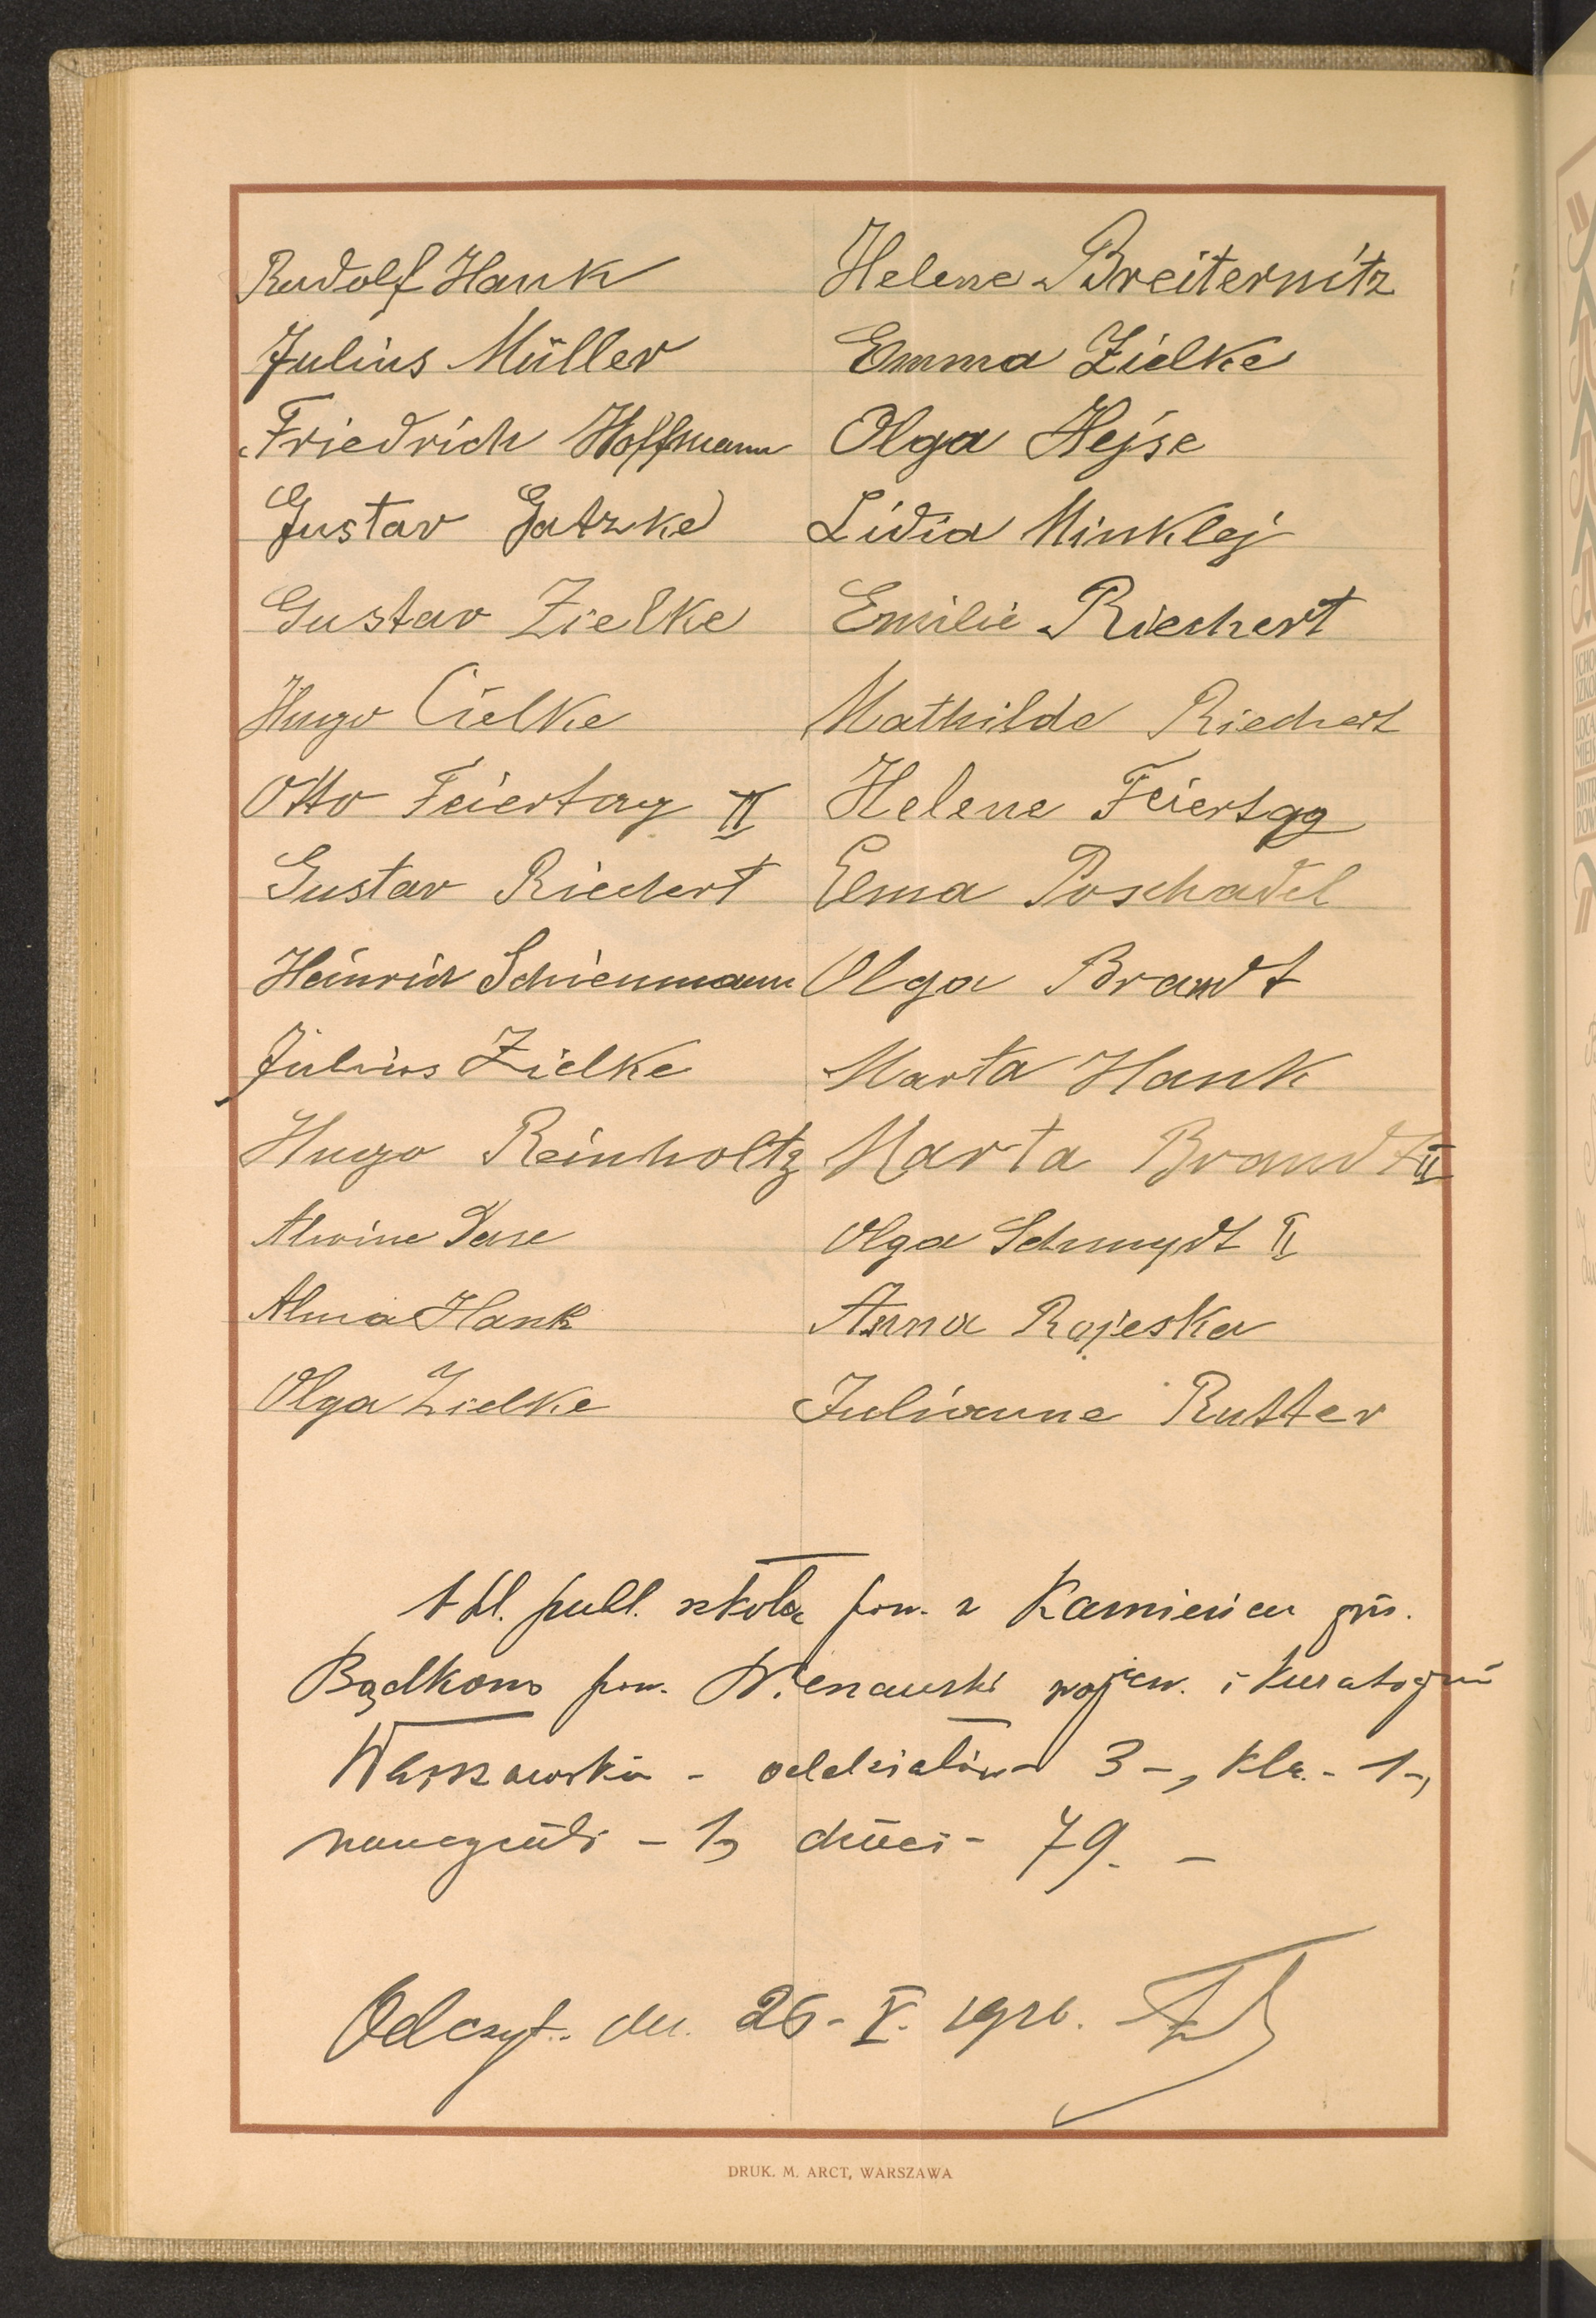 Rudolf Hank
Julius Müller
Friedrich Hoffmann
Gustav Gatzke
Gustav Zielke
Hugo Cielke
Otto Feiertag II
Gustav Riechert
Heinrich Schienmann
Julius Zielke
Hugo Reinholtz
Alwine
Alma Hank
Olga Zielke
Helene Breiternitz
Emma Zielke
Olga Hejse
Lidia Minklej
Emilie Riechert
Mathilde Riechert
Helene Feiertag
Ema Poschadel
Olga Brandt
Marta Hank
Marta Brandt II
Olga Schmydt II
Anna Rojeska
Julianne Rutter
1 kl. publ. szkoła pow. w Kamieńcu gm.
Bądkowo pow. Nieszawski wojew. i Kuratorjum
Warszawskie - oddziałów 3-, kla. - 1-,
nauczycieli - 1, dzieci - 79. -
Odczyt. dn. 26 - V. 1926.
DRUK. M. ARCT, WARSZAWA